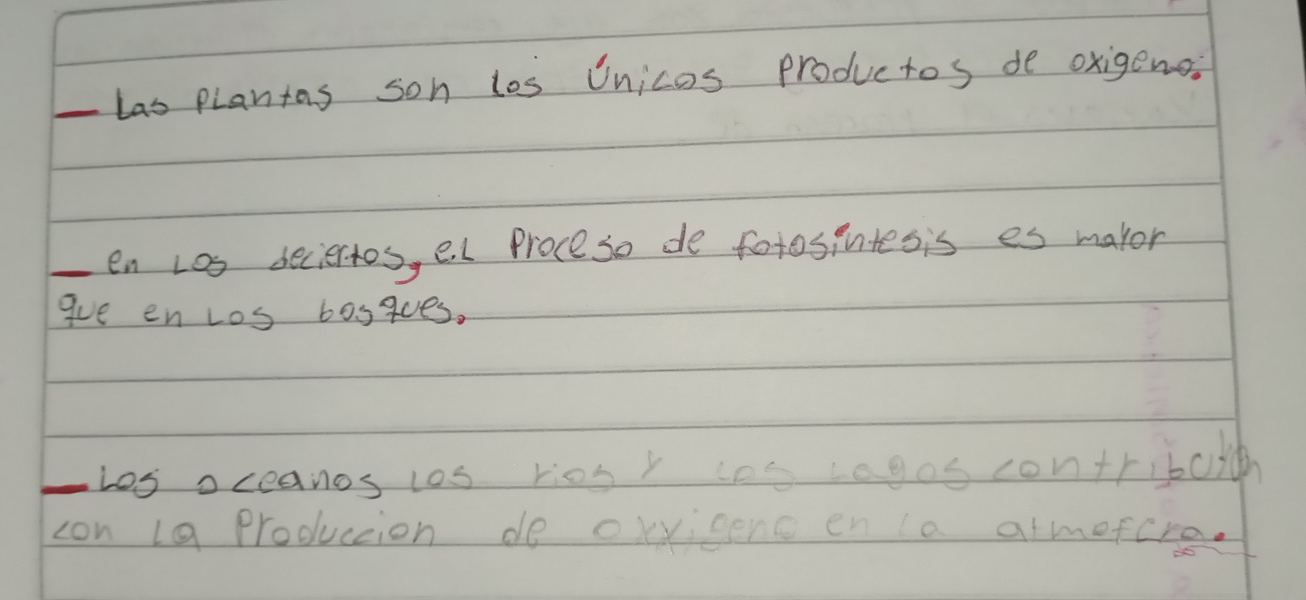 — Las plantas son los únicos productos de oxigeno.
— en los deciertos, el proceso de fotosíntesis es mayor
que en los bosques.
— Los oceanos los rios y los lagos contribuyen
con la produccion de oxxigeno en la atmofcra.